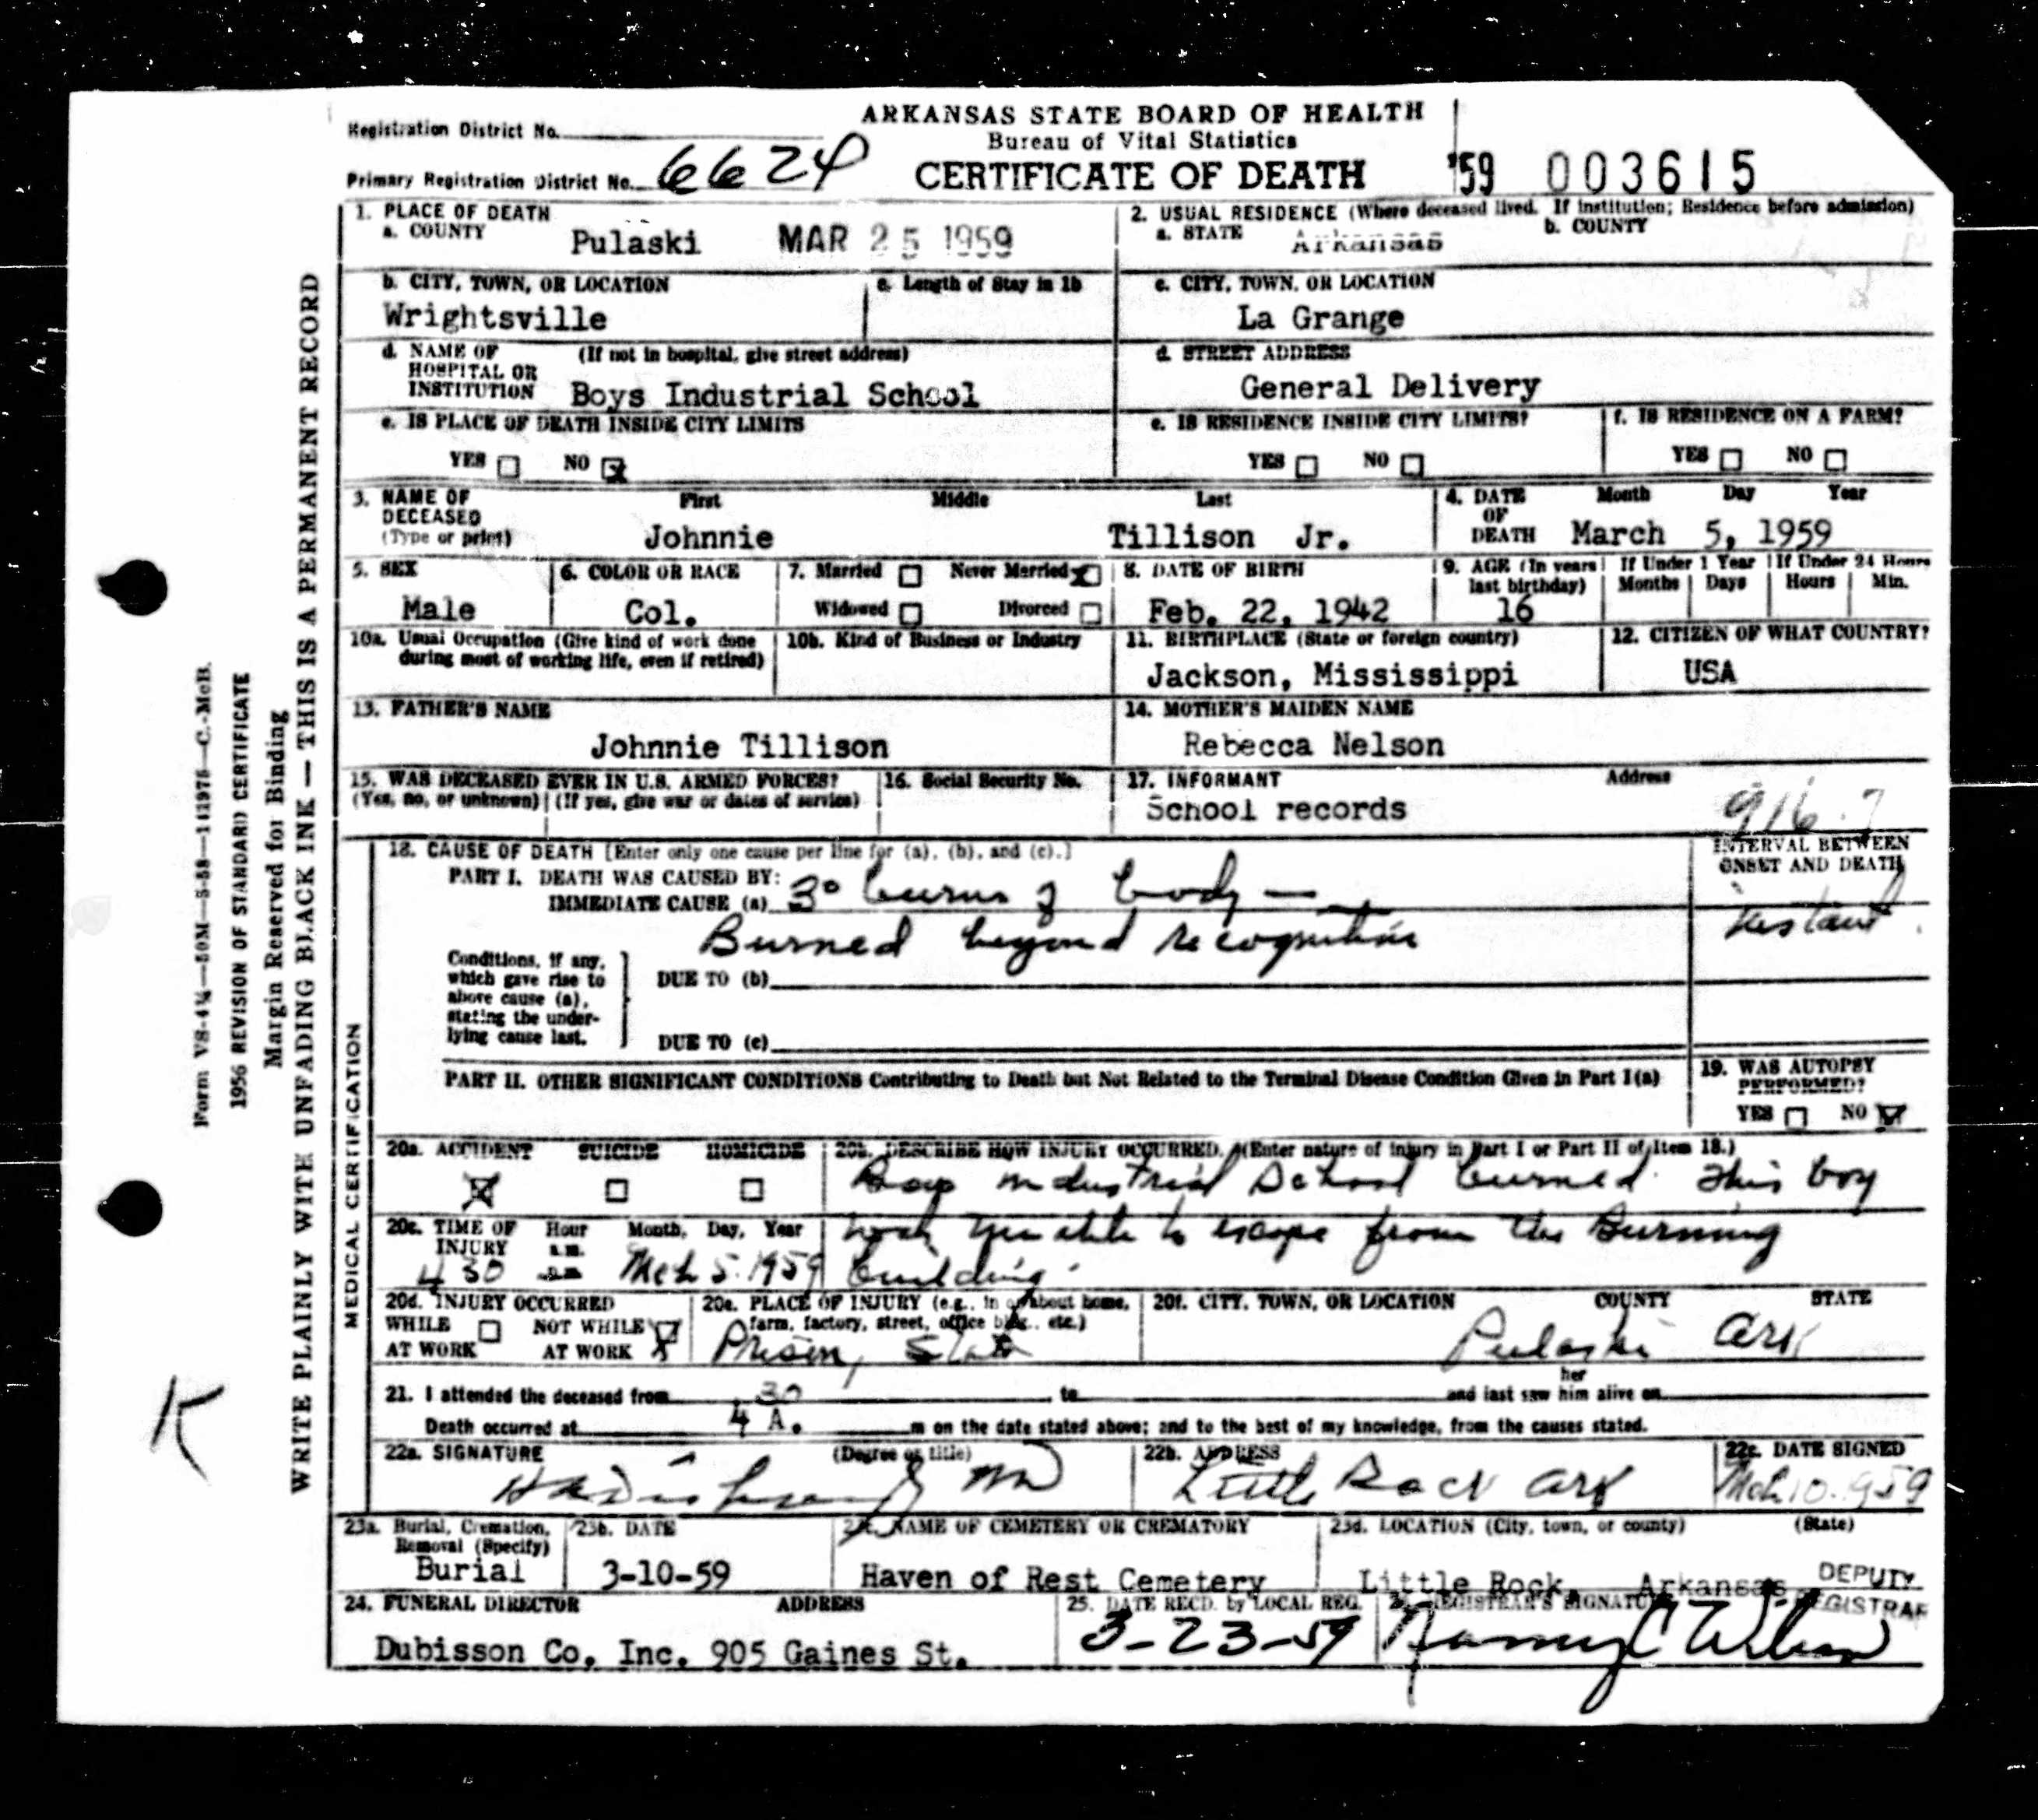 ARKANSAS STATE BOARD OF HEALTH
Bureau of Vital Statistics
CERTIFICATE OF DEATH
Registration District No.
Primary Registration District No. 6624
'59 003615
1. PLACE OF DEATH
a. COUNTY Pulaski MAR 25 1959
2. USUAL RESIDENCE (Where deceased lived. If institution; Residence before admission)
a. STATE Arkansas b. COUNTY
b. CITY, TOWN, OR LOCATION
Wrightsville
c. Length of Stay in 1b
c. CITY, TOWN, OR LOCATION
La Grange
d. NAME OF HOSPITAL OR INSTITUTION (If not in hospital, give street address)
Boys Industrial School
d. STREET ADDRESS
General Delivery
e. IS PLACE OF DEATH INSIDE CITY LIMITS
YES NO X
e. IS RESIDENCE INSIDE CITY LIMITS?
YES NO
f. IS RESIDENCE ON A FARM?
YES NO
3. NAME OF DECEASED (Type or print)
First Middle Last
Johnnie Tillison Jr.
4. DATE OF DEATH Month Day Year
March 5, 1959
5. SEX
Male
6. COLOR OR RACE
Col.
7. Married Never Married X
Widowed Divorced
8. DATE OF BIRTH
Feb. 22, 1942
9. AGE (In years last birthday)
16
If Under 1 Year
Months Days
If Under 24 Hours
Hours Min.
10a. Usual Occupation (Give kind of work done during most of working life, even if retired)
10b. Kind of Business or Industry
11. BIRTHPLACE (State or foreign country)
Jackson, Mississippi
12. CITIZEN OF WHAT COUNTRY?
USA
13. FATHER'S NAME
Johnnie Tillison
14. MOTHER'S MAIDEN NAME
Rebecca Nelson
15. WAS DECEASED EVER IN U.S. ARMED FORCES?
(Yes, no, or unknown) (If yes, give war or dates of service)
16. Social Security No.
17. INFORMANT Address
School records
916.
18. CAUSE OF DEATH [Enter only one cause per line for (a), (b), and (c).]
PART I. DEATH WAS CAUSED BY:
IMMEDIATE CAUSE (a) 3° burns of body —
Burned beyond recognition
INTERVAL BETWEEN ONSET AND DEATH
instant
Conditions, if any, which gave rise to above cause (a), stating the underlying cause last.
DUE TO (b)
DUE TO (c)
PART II. OTHER SIGNIFICANT CONDITIONS Contributing to Death but Not Related to the Terminal Disease Condition Given in Part I(a)
19. WAS AUTOPSY PERFORMED?
YES NO X
20a. ACCIDENT SUICIDE HOMICIDE
X
20b. DESCRIBE HOW INJURY OCCURRED. (Enter nature of injury in Part I or Part II of Item 18.)
Boys Industrial School burned. This boy
was unable to escape from the Burning
building.
20c. TIME OF INJURY Hour a.m. p.m. Month, Day, Year
4 30 Mch 5. 1959
20d. INJURY OCCURRED
WHILE AT WORK NOT WHILE AT WORK X
20e. PLACE OF INJURY (e.g., in or about home, farm, factory, street, office bldg., etc.)
Prison, State
20f. CITY, TOWN, OR LOCATION COUNTY STATE
Pulaski Ark
21. I attended the deceased from to and last saw her him alive on
Death occurred at 4 30 A. m on the date stated above; and to the best of my knowledge, from the causes stated.
22a. SIGNATURE (Degree or title)
22b. ADDRESS
Little Rock Ark
22c. DATE SIGNED
Mch 10. 1959
23a. Burial, Cremation, Removal (Specify)
Burial
23b. DATE
3-10-59
23c. NAME OF CEMETERY OR CREMATORY
Haven of Rest Cemetery
23d. LOCATION (City, town, or county) (State)
Little Rock, Arkansas
24. FUNERAL DIRECTOR ADDRESS
Dubisson Co, Inc. 905 Gaines St.
25. DATE RECD. by LOCAL REG.
3-23-59
26. REGISTRAR'S SIGNATURE
DEPUTY REGISTRAR
MEDICAL CERTIFICATION
WRITE PLAINLY WITH UNFADING BLACK INK — THIS IS A PERMANENT RECORD
Margin Reserved for Binding
1956 REVISION OF STANDARD CERTIFICATE
K